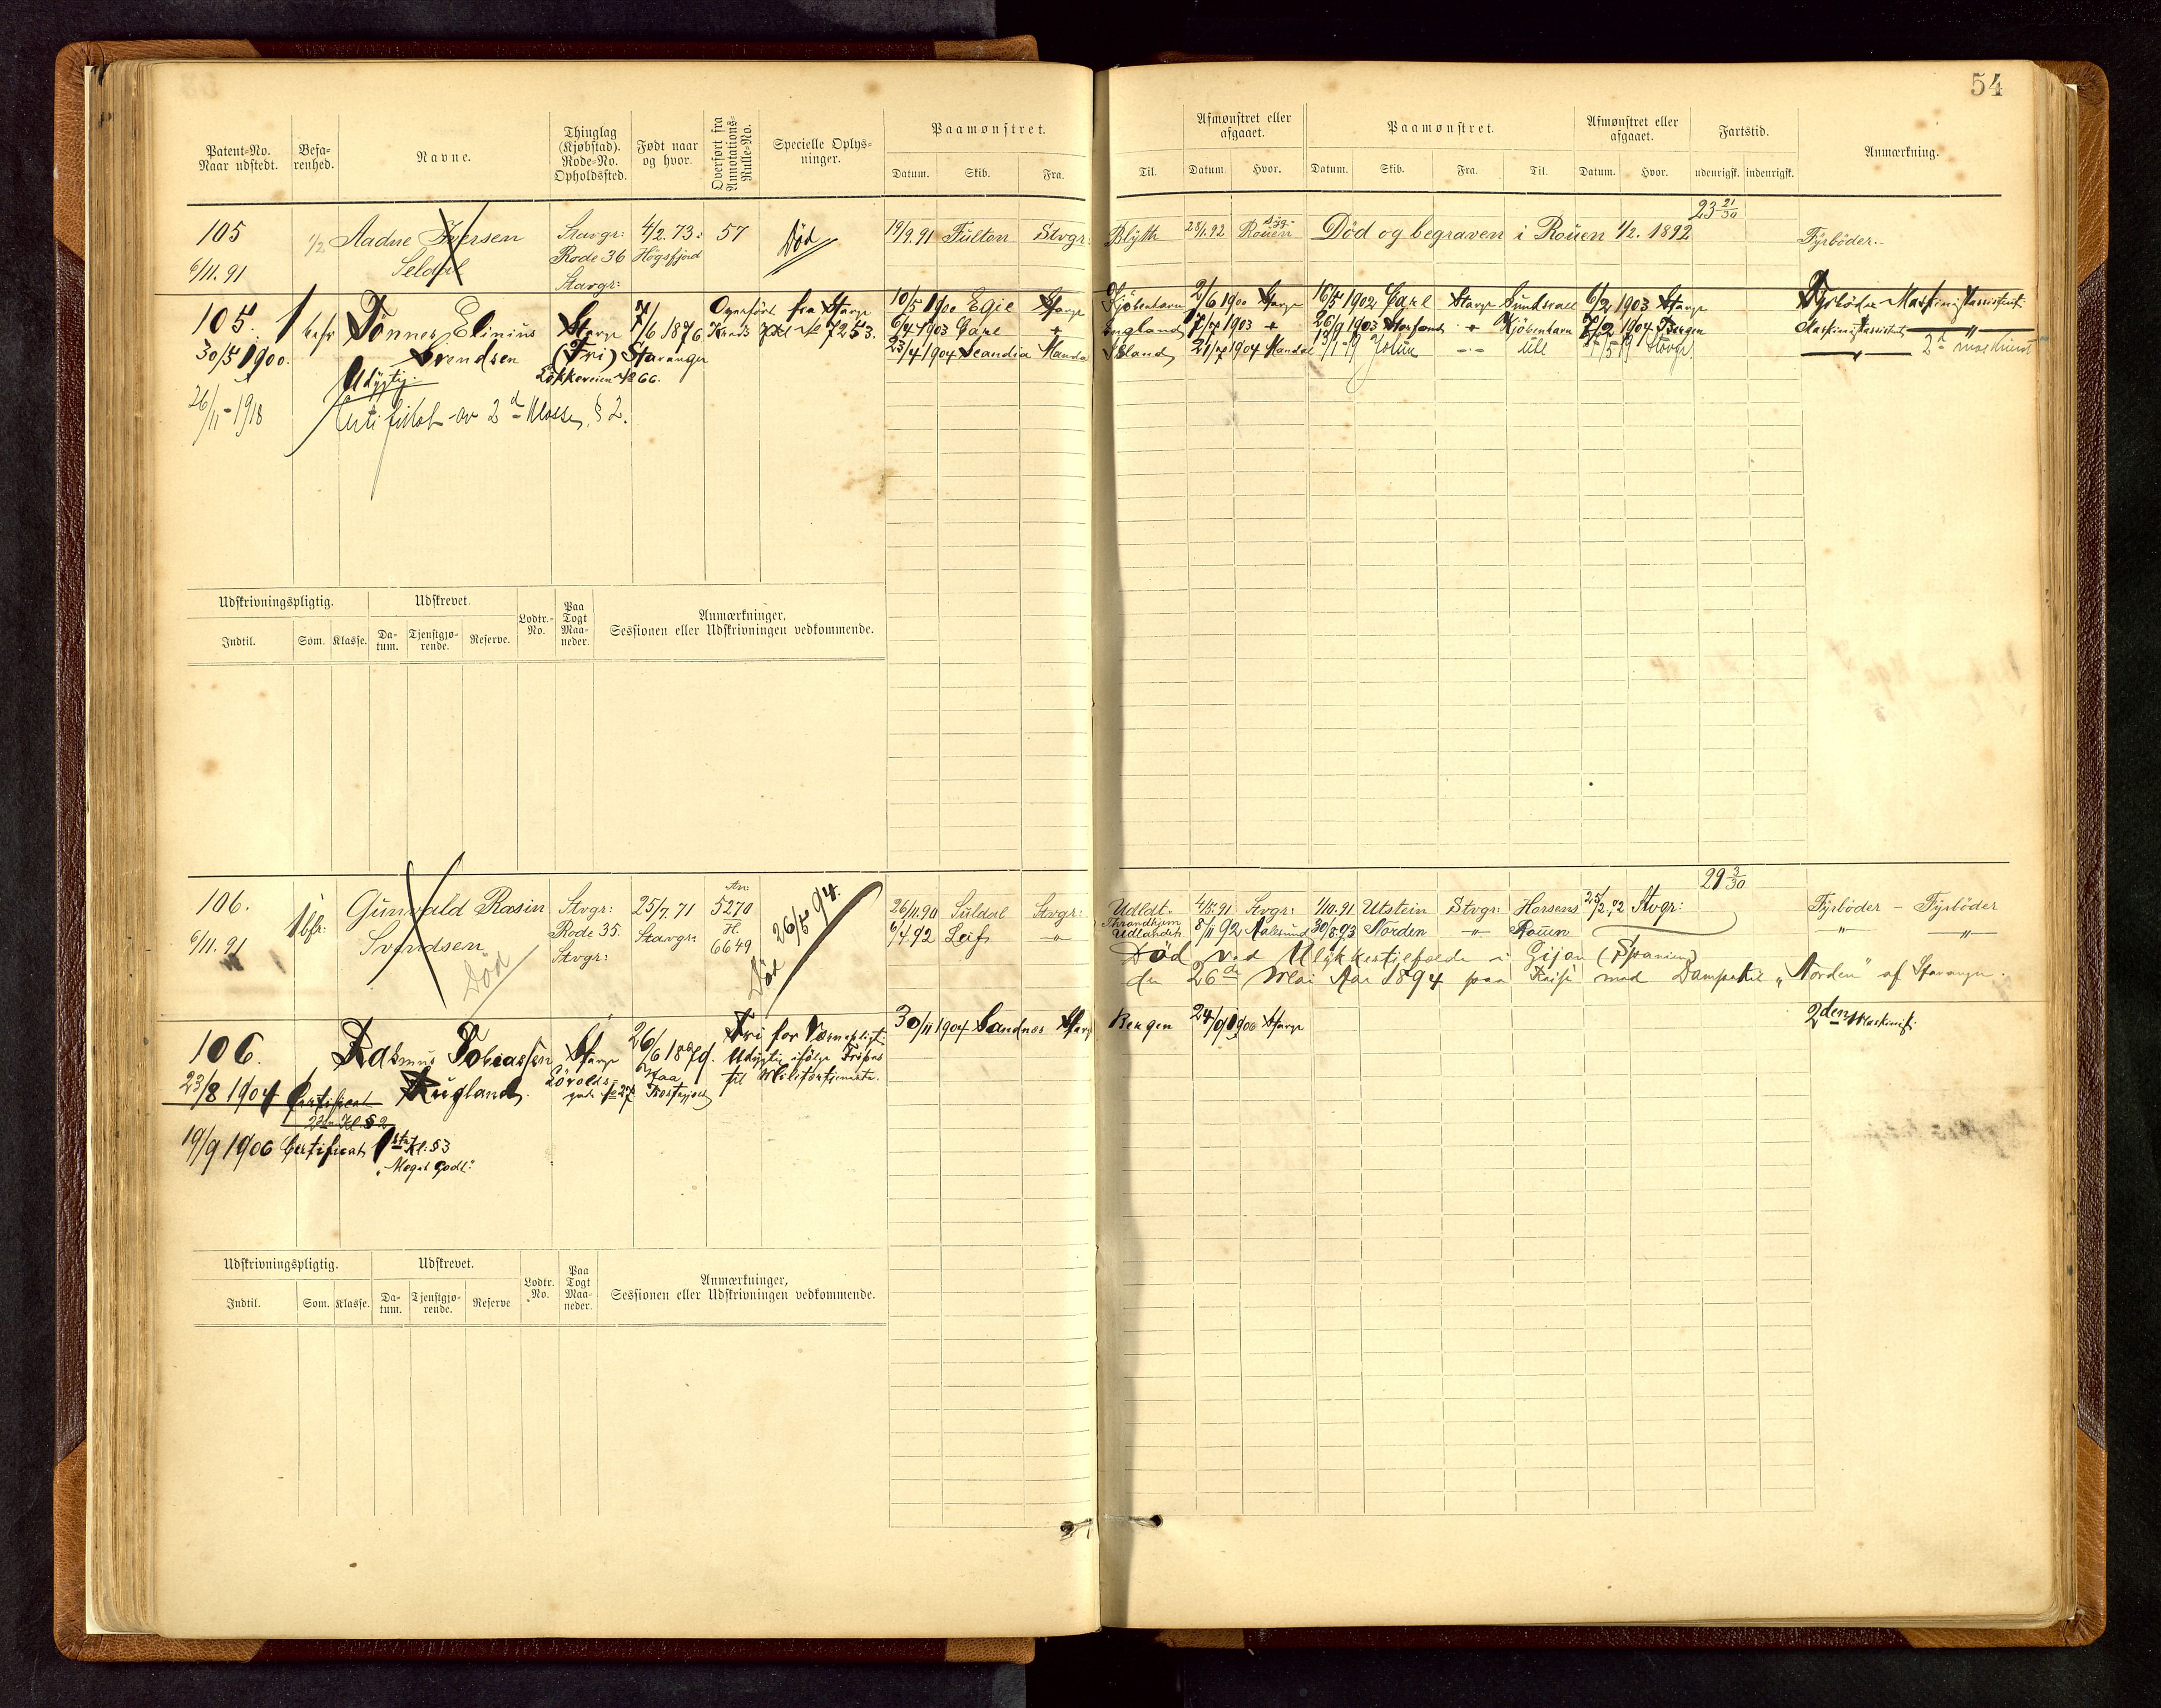 54
Patent-No. Naar udstedt.
Befarenhed.
Navne.
Thinglag (Kjøbstad). Rode-No. Opholdssted.
Født naar og hvor.
Overført fra Annotations-Rulle-No.
Specielle Oplysninger.
Paamønstret.
Datum. Skib. Fra. Til.
Afmønstret eller afgaaet.
Datum Hvor.
Paamønstret.
Datum. Skib. Fra. Til.
Afmønstret eller afgaaet.
Datum. Hvor.
Fartstid.
udenrigsk. indenrigsk.
Anmærkning.
23 21/30
105 1/2 Aadne Iversen Stavgr: 4/2. 73: 57 Död 19/9. 91 Fulton Stvgr: Blyth 28/1.92 Rouen Död og begraven i Rouen 1/2. 1892 Fyrböder.
6/11. 91 Seldal Rode 36 Högsfjord
Stavgr:
105. Tönnes Elinius Stavgr 7/6 1876 Overfört fra Stavgr 10/5 1900 Egil Stavgr Kjöbenhavn 2/6 1900 Stavgr 16/5 1902 Carl Stavgr Sundsvall 6/2 1903 Stavgr Fyrböder Maskinistassistent
30/5 1900. Svendsen (Fri) Stavanger Kreds No 7253. 6/4 1903 Carl + England 7/7 1903 + 26/9 1903 + Kjöbenhavn 7/2 1904 Bergen Maskinistassistent
Udygtig. Lökkeveien No 66. 23/4 1904 Scandia Mandal Island 21/7 1904 Mandal Jotun Udl Stavgr. 2d maskinist
26/11-1918 Certifikat av 2d Klasse, § 2.
Udskrivningspligtig. Udskrevet. Lodtr.-No. Paa Togt Maaneder. Anmærkninger, Sessionen eller Udskrivningen vedkommende.
Indtil. Som. Klasse. Datum. Tjenstgjørende. Reserve.
29 3/30
106. 1 bfr: Gunvald Rasin Stvgr: 25/7. 71 An: 5270 Död 26/5 94. 26/11.90 Suldal Stvgr: Udldt. 4/5.91 Stvgr: 1/10.91 Utstein Stvgr: Horsens 25/2.92 Stvgr: Fyrböder – Fyrböder
6/11. 91 Svendsen Rode 35. Stavgr: H. 6649 6/4.92 Leif " Throndhjem Udlandet. 8/11 92 Aalesund 30/8.93 Norden " Rouen " "
Död Stvgr:
Död ved Ulykkestilfælde i Gijon (Spanien)
den 26de Mai Aar 1894 paa Reise med Dampskib „Norden" af Stavanger.
106. Rasmus Tobiassen Stavgr 26/6 1879. Fri for Værnepligt. 30/11 1904 Sandnes Stavgr Bergen 24/9 1906 Stavgr 2den Maskinist.
23/8 1904 Certificat Rugland. Udygtig ifölge Fripas
2den Kl § 2 No 27 til Militærtjeneste.
19/9 1906 Certificat 1ste Kl: § 3
„Meget Godt."
Udskrivningspligtig. Udskrevet. Lodtr. No. Paa Togt Maaneder. Anmærkninger, Sessionen eller Udskrivningen vedkommende.
Indtil. Som. Klasse. Datum. Tjenstgjørende. Reserve